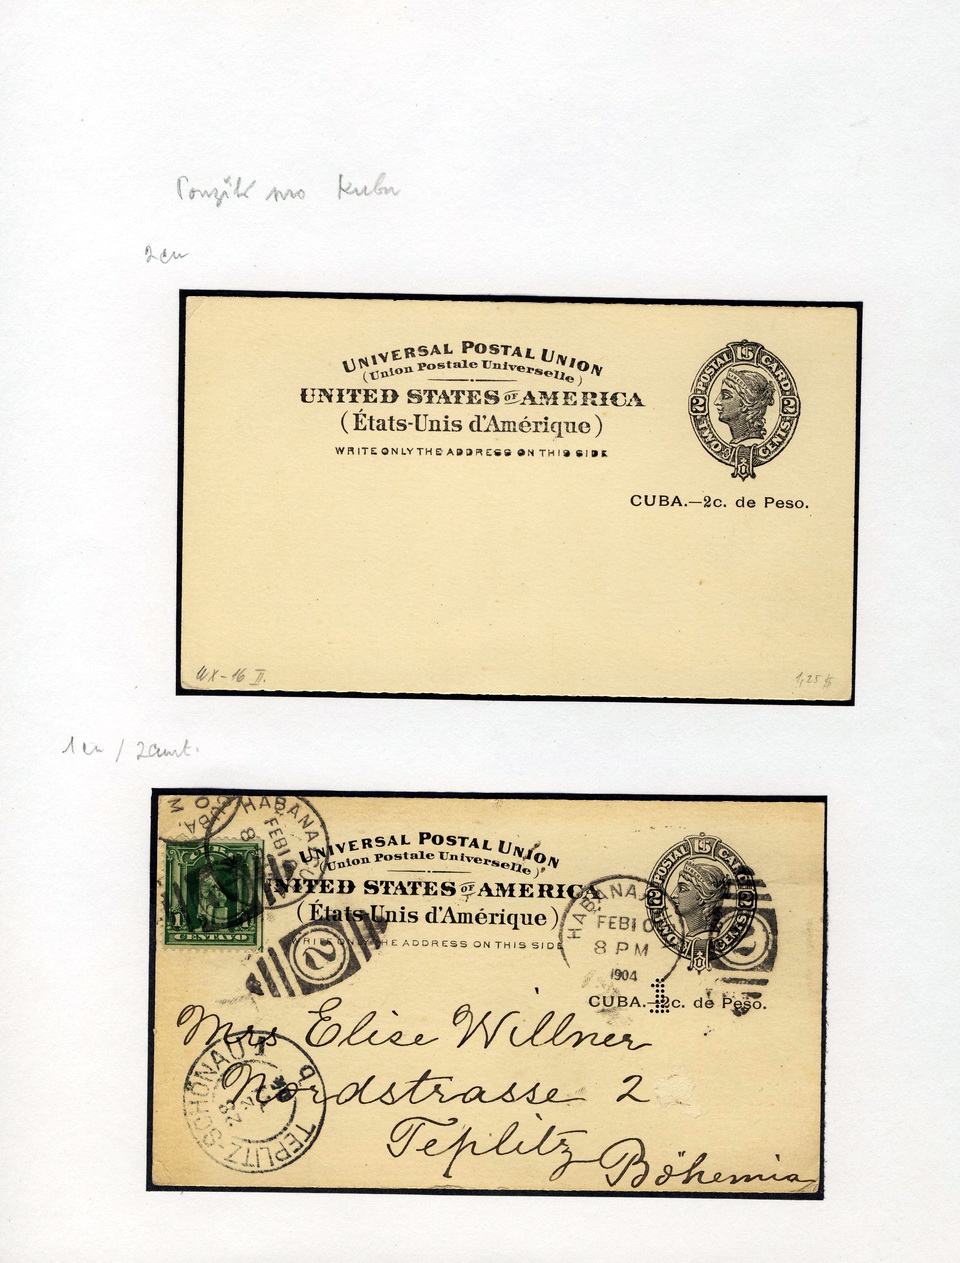 Použité pro Kubu
2 cu
UNIVERSAL POSTAL UNION
(Union Postale Universelle)
UNITED STATES OF AMERICA
(États-Unis d'Amérique)
WRITE ONLY THE ADDRESS ON THIS SIDE
POSTAL 1S CARD
2 2
TWO CENTS
CUBA.—2c. de Peso.
UX-16 II.
1,25 $
HABANA
FEB 1
8
UNIVERSAL POSTAL UNION
(Union Postale Universelle)
UNITED STATES OF AMERICA
(États-Unis d'Amérique)
WRITE ONLY THE ADDRESS ON THIS SIDE
POSTAL 1S CARD
2 2
TWO CENTS
1 CENTAVO
2
HABANA
FEB 10
8 PM
1904
2
CUBA.—2c. de Peso.
1
Mrs Elise Willner
Nordstrasse 2
Teplitz
Böhemia
TEPLITZ-SCHÖNAU 1
28
TEPLITZ